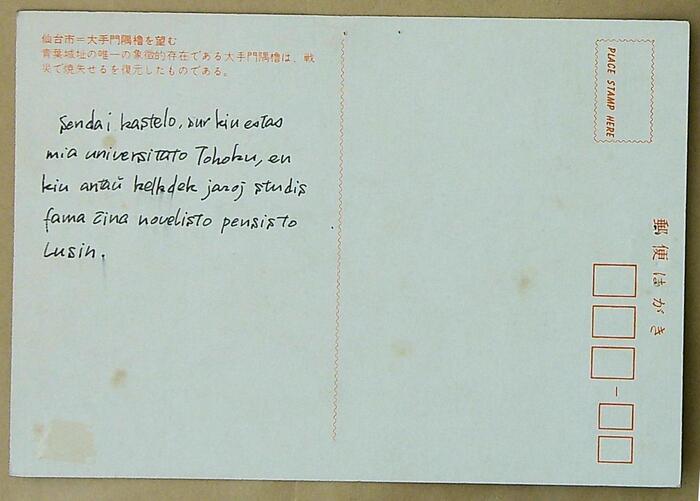 仙台市=大手門隅櫓を望む
青葉城址の唯一の象徴的存在である大手門隅櫓は、戦
災で焼失せるを復元したものである。
Sendai kastelo, sur kiu estas
mia universitato Tohoku, en
kiu antaŭ kelkdek jaroj studis
fama ĉina novelisto pensisto
Lusin.
PLACE STAMP HERE
郵便はがき